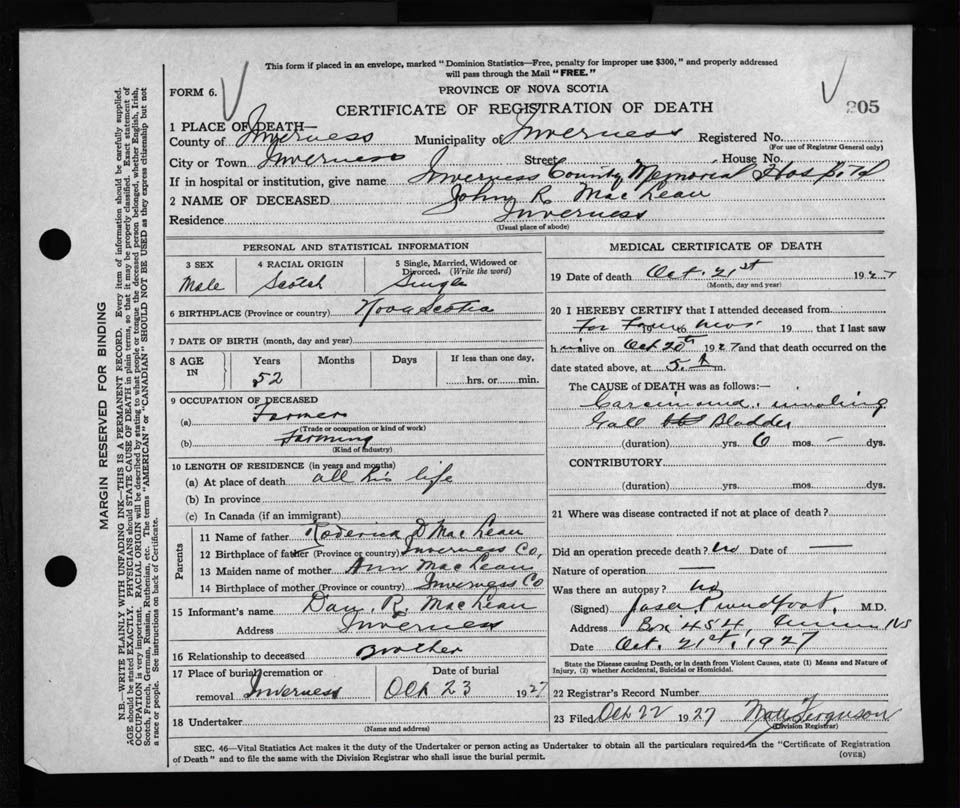 This form if placed in an envelope, marked "Dominion Statistics—Free, penalty for improper use $300," and properly addressed
will pass through the Mail "FREE."
FORM 6.
PROVINCE OF NOVA SCOTIA
CERTIFICATE OF REGISTRATION OF DEATH
205
1 PLACE OF DEATH—
County of Inverness Municipality of Inverness Registered No.
(For use of Registrar General only)
City or Town Inverness Street House No.
If in hospital or institution, give name Inverness County Memorial Hospital
2 NAME OF DECEASED John R. MacLean
Residence Inverness
(Usual place of abode)
PERSONAL AND STATISTICAL INFORMATION
3 SEX 4 RACIAL ORIGIN 5 Single, Married, Widowed or
Divorced. (Write the word)
Male Scotch Single
6 BIRTHPLACE (Province or country) Nova Scotia
7 DATE OF BIRTH (month, day and year)
8 AGE IN Years Months Days If less than one day,
52 hrs. or min.
9 OCCUPATION OF DECEASED
(a) Farmer
(Trade or occupation or kind of work)
(b) Farming
(Kind of industry)
10 LENGTH OF RESIDENCE (in years and months)
(a) At place of death all his life
(b) In province
(c) In Canada (if an immigrant)
Parents
11 Name of father Roderick D MacLean
12 Birthplace of father (Province or country) Inverness Co.
13 Maiden name of mother Ann MacLean
14 Birthplace of mother (Province or country) Inverness Co
15 Informant's name Dan. R. MacLean
Address Inverness
16 Relationship to deceased Brother
17 Place of burial cremation or Date of burial
removal Inverness Oct 23 1927
18 Undertaker
(Name and address)
MEDICAL CERTIFICATE OF DEATH
19 Date of death Oct. 21st 1927
(Month, day and year)
20 I HEREBY CERTIFY that I attended deceased from
For Four mos. 19 that I last saw
him alive on Oct 20th 1927 and that death occurred on the
date stated above, at 5. A m.
The CAUSE of DEATH was as follows:—
Carcinoma involving
Gall Bladder
(duration) yrs. 6 mos. — dys.
CONTRIBUTORY
(duration) yrs. mos. dys.
21 Where was disease contracted if not at place of death?
Did an operation precede death? No Date of —
Nature of operation —
Was there an autopsy? No
(Signed) Proudfoot, M.D.
Address Box 454, NS
Date Oct. 21st, 1927
State the Disease causing Death, or in death from Violent Causes, state (1) Means and Nature of
Injury, (2) whether Accidental, Suicidal or Homicidal.
22 Registrar's Record Number
23 Filed Oct 22 1927 Ferguson
(Division Registrar)
SEC. 46—Vital Statistics Act makes it the duty of the Undertaker or person acting as Undertaker to obtain all the particulars required in the "Certificate of Registration
of Death" and to file the same with the Division Registrar who shall issue the burial permit.
(OVER)
MARGIN RESERVED FOR BINDING
N.B.—WRITE PLAINLY WITH UNFADING INK—THIS IS A PERMANENT RECORD. Every item of information should be carefully supplied.
AGE should be stated EXACTLY. PHYSICIANS should STATE CAUSE OF DEATH in plain terms, so that it may be properly classified. Exact statement of
OCCUPATION is very important. RACIAL ORIGIN will be described by stating to what people or tongue the deceased person belonged, whether English, Irish,
Scotch, French, German, Russian, Ruthenian, etc. The terms "AMERICAN" or "CANADIAN" SHOULD NOT BE USED as they express citizenship but not
a race or people. See instructions on back of Certificate.